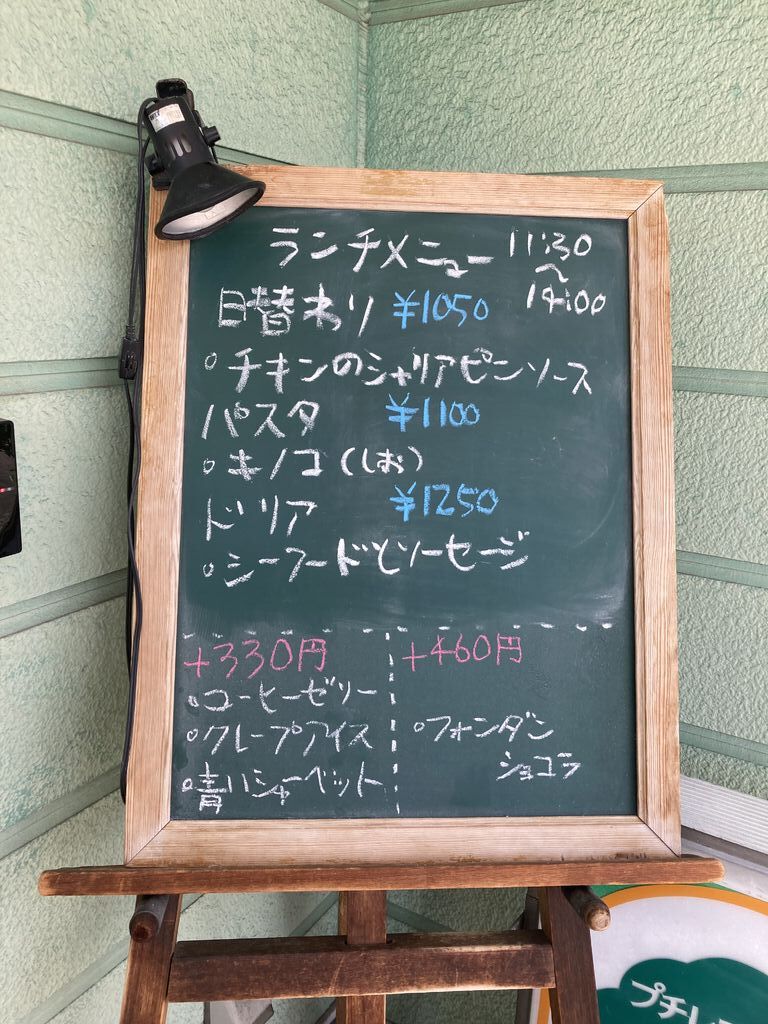 ランチメニュー 11:30
〜
14:00
日替わり ¥1050
○チキンのシャリアピンソース
パスタ ¥1100
○キノコ(しお)
ドリア ¥1250
○シーフードとソーセージ
+330円
○コーヒーゼリー
○クレープアイス
○青いシャーベット
+460円
○フォンダン
ショコラ
プチレ